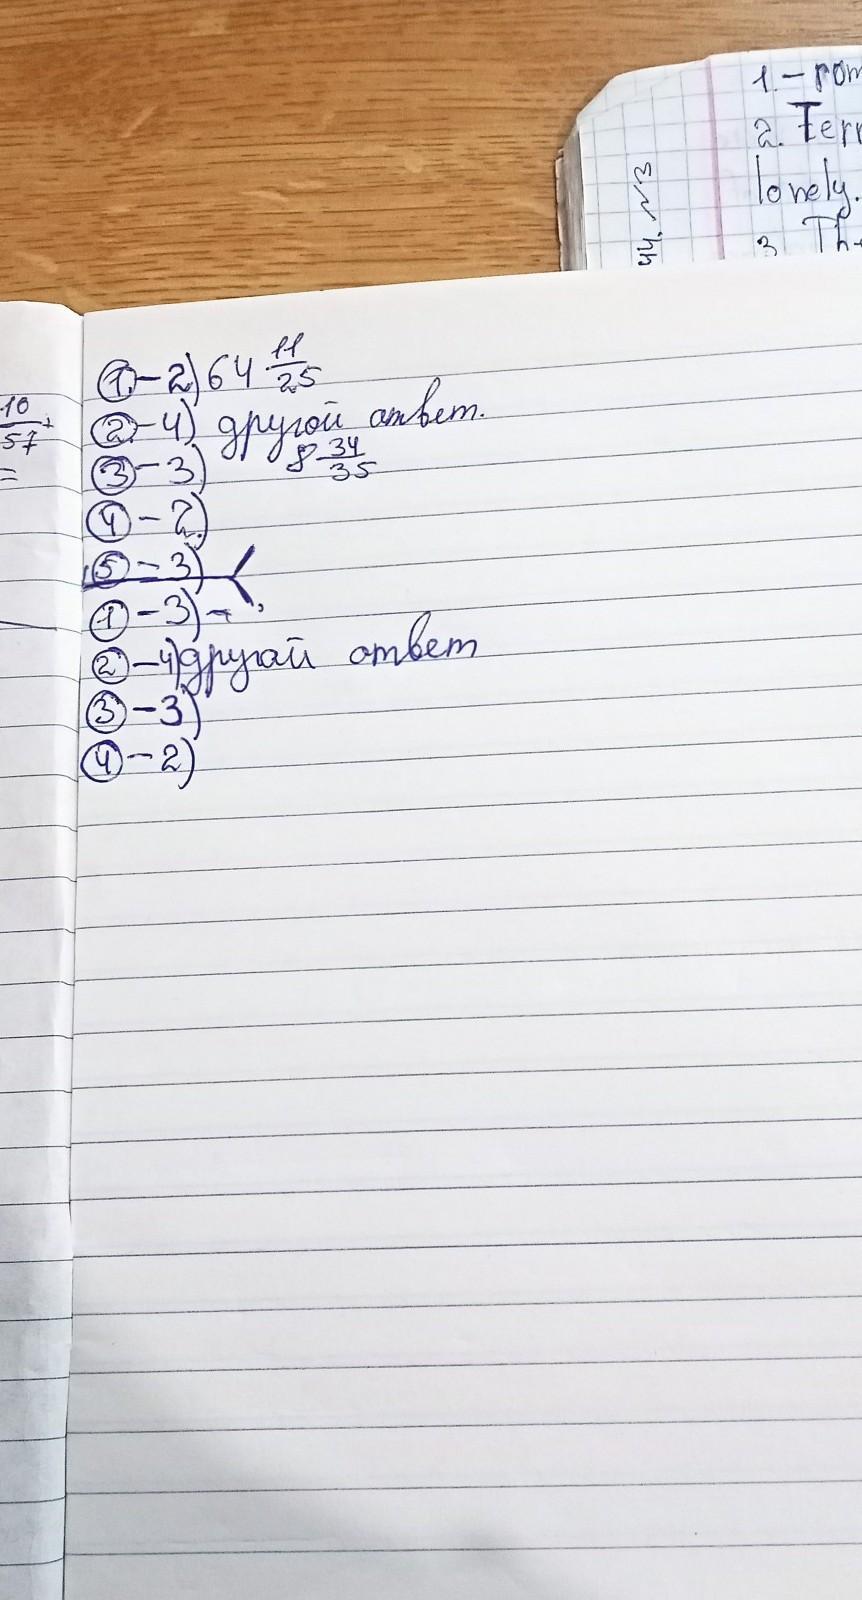 1.- pom
2. Terr
lonely.
3 Th
44, ~3
10
57 +
=
① - 2) 64 11/25
② - 4) другой ответ.
8 34/35
③ - 3)
④ - 2)
⑤ - 3)
① - 3) -
② - 4) другай ответ
③ - 3)
④ - 2)